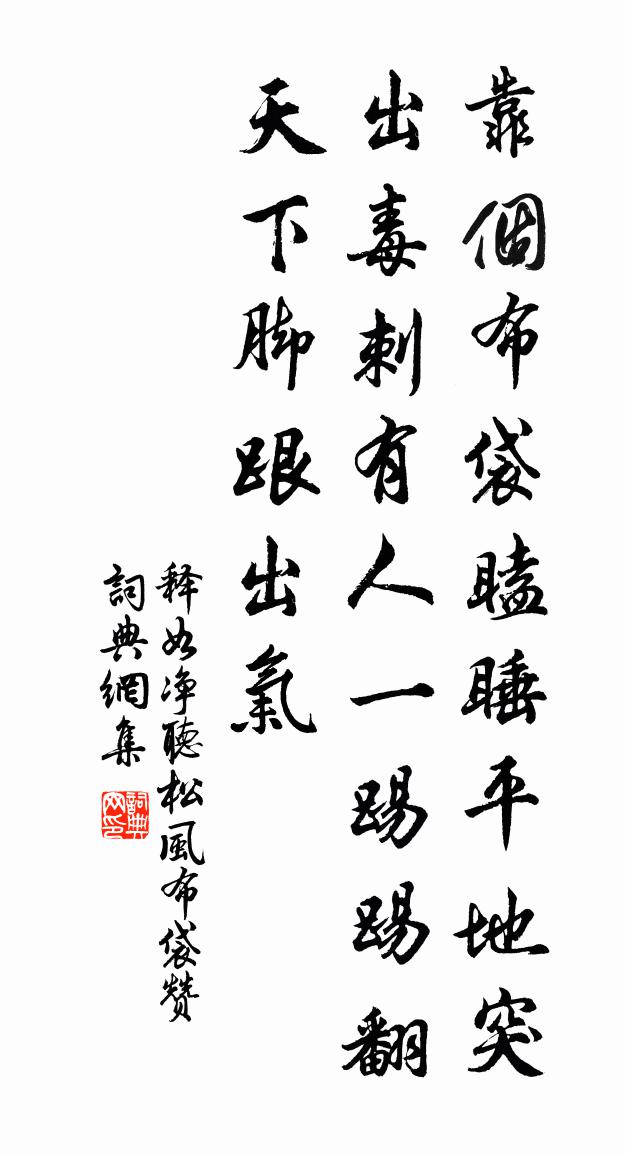 靠個布袋瞌睡平地突
出毒刺有人一踢踢翻
天下脚跟出氣
释如净聽松風布袋贊
詞典網集
詞典网印